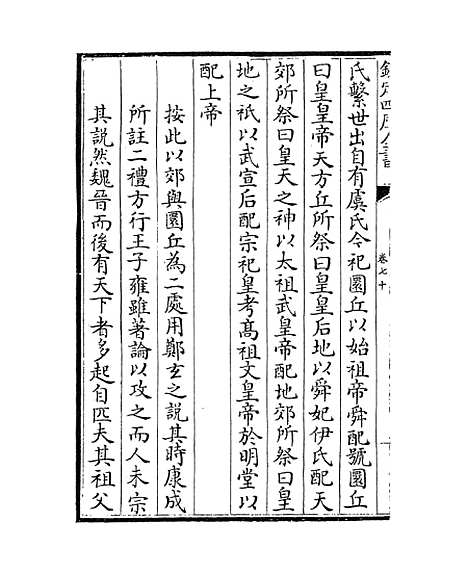 欽定四庫全書
卷七十
氏繫世出自有虞氏今祀圜丘以始祖帝舜配號圜丘
曰皇皇帝天方丘所祭曰皇皇后地以舜妃伊氏配天
郊所祭曰皇天之神以太祖武皇帝配地郊所祭曰皇
地之祇以武宣后配宗祀皇考髙祖文皇帝於明堂以
配上帝
按此以郊與圜丘為二處用鄭玄之説其時康成
所註二禮方行王子雍雖著論以攻之而人未宗
其説然魏晉而後有天下者多起自匹夫其祖父